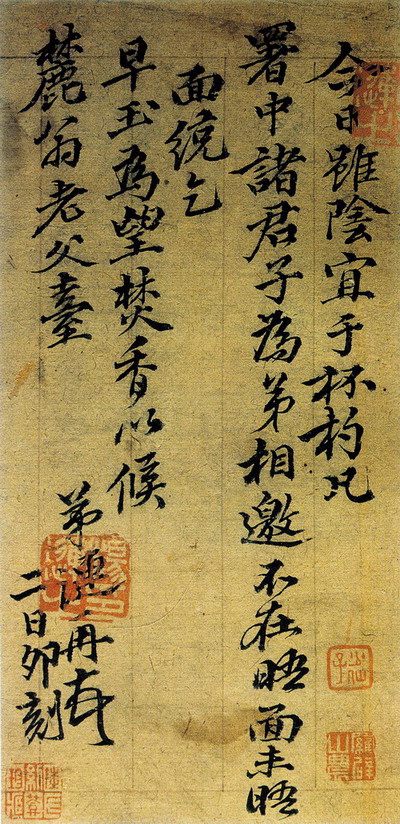 今日雖陰宜于杯杓凡
署中諸君子為弟相邀不在晤面未晤
面統乞
早玉為望焚香以候
麓翁老父臺
弟漣再拜
二日卯刻